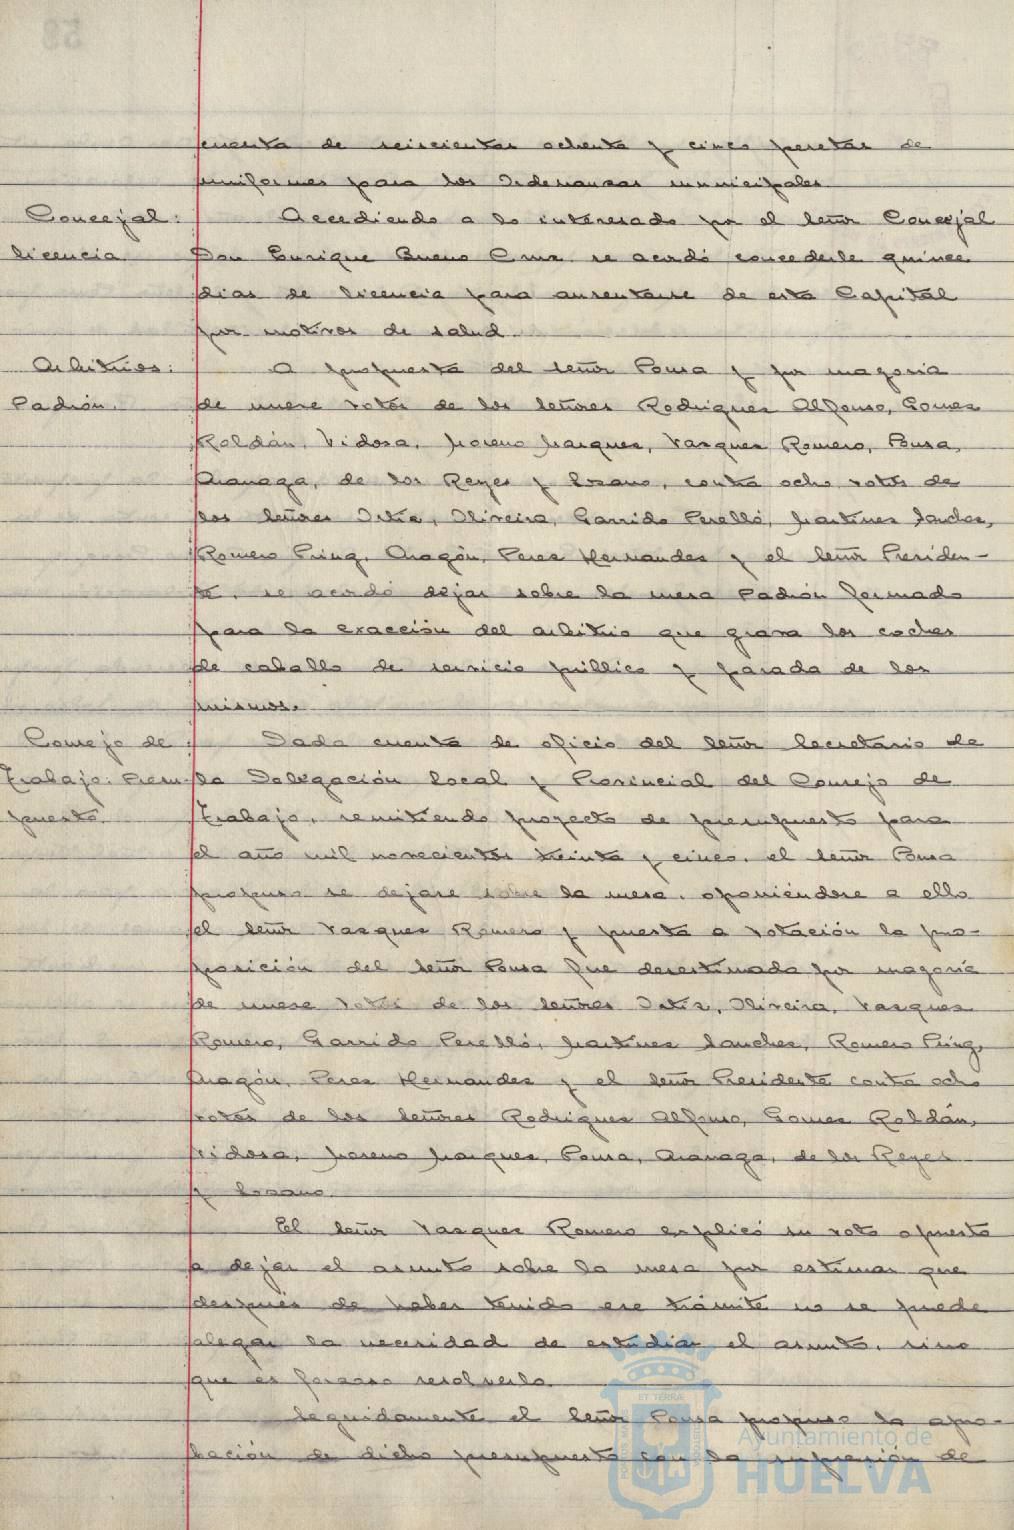 cuenta de seiscientas ochenta y cinco pesetas de
uniformes para los Ordenanzas municipales.
Concejal:
licencia.
Accediendo a lo interesado por el señor Concejal
Don Enrique Bueno Cruz, se acordó concederle quince
dias de licencia para ausentarse de esta Capital
por motivos de salud.
Arbitrios:
Padrón.
A propuesta del señor Ponsa y por mayoria
de nueve votos de los señores Rodriguez Alfonso, Gomez
Roldán, Vidosa, Moreno Marquez, Vazquez Romero, Ponsa,
Aranaga, de los Reyes y Lozano, contra ocho votos de
los señores Ortiz, Oliveira, Garrido Perelló, Martinez Sanchez,
Romero Puig, Aragón, Perez Hernandez y el señor Presiden-
te, se acordó dejar sobre la mesa Padrón formado
para la exacción del arbitrio que grava los coches
de caballo de servicio público y parada de los
mismos.
Consejo de
Trabajo: Presu-
puesto.
Dada cuenta de oficio del señor Secretario de
la Delegación local y Provincial del Consejo de
Trabajo, remitiendo proyecto de presupuesto para
el año mil novecientos treinta y cinco, el señor Ponsa
propuso se dejase sobre la mesa, oponiéndose a ello
el señor Vazquez Romero y puesta a votación la pro-
posición del señor Ponsa fue desestimada por mayoría
de nueve votos de los señores Ortiz, Oliveira, Vazquez
Romero, Garrido Perelló, Martinez Sanchez, Romero Puig,
Aragón, Perez Hernandez y el señor Presidente contra ocho
votos de los señores Rodriguez Alfonso, Gomez Roldán,
Vidosa, Moreno Marquez, Ponsa, Aranaga, de los Reyes
y Lozano.
El señor Vazquez Romero explicó su voto opuesto
a dejar el asunto sobre la mesa por estimar que
después de haber tenido ese trámite no se puede
alegar la necesidad de estudiar el asunto, sino
que es forzoso resolverlo.
Seguidamente el señor Ponsa propuso la apro-
bación de dicho presupuesto con la supresión de
Ayuntamiento de
HUELVA